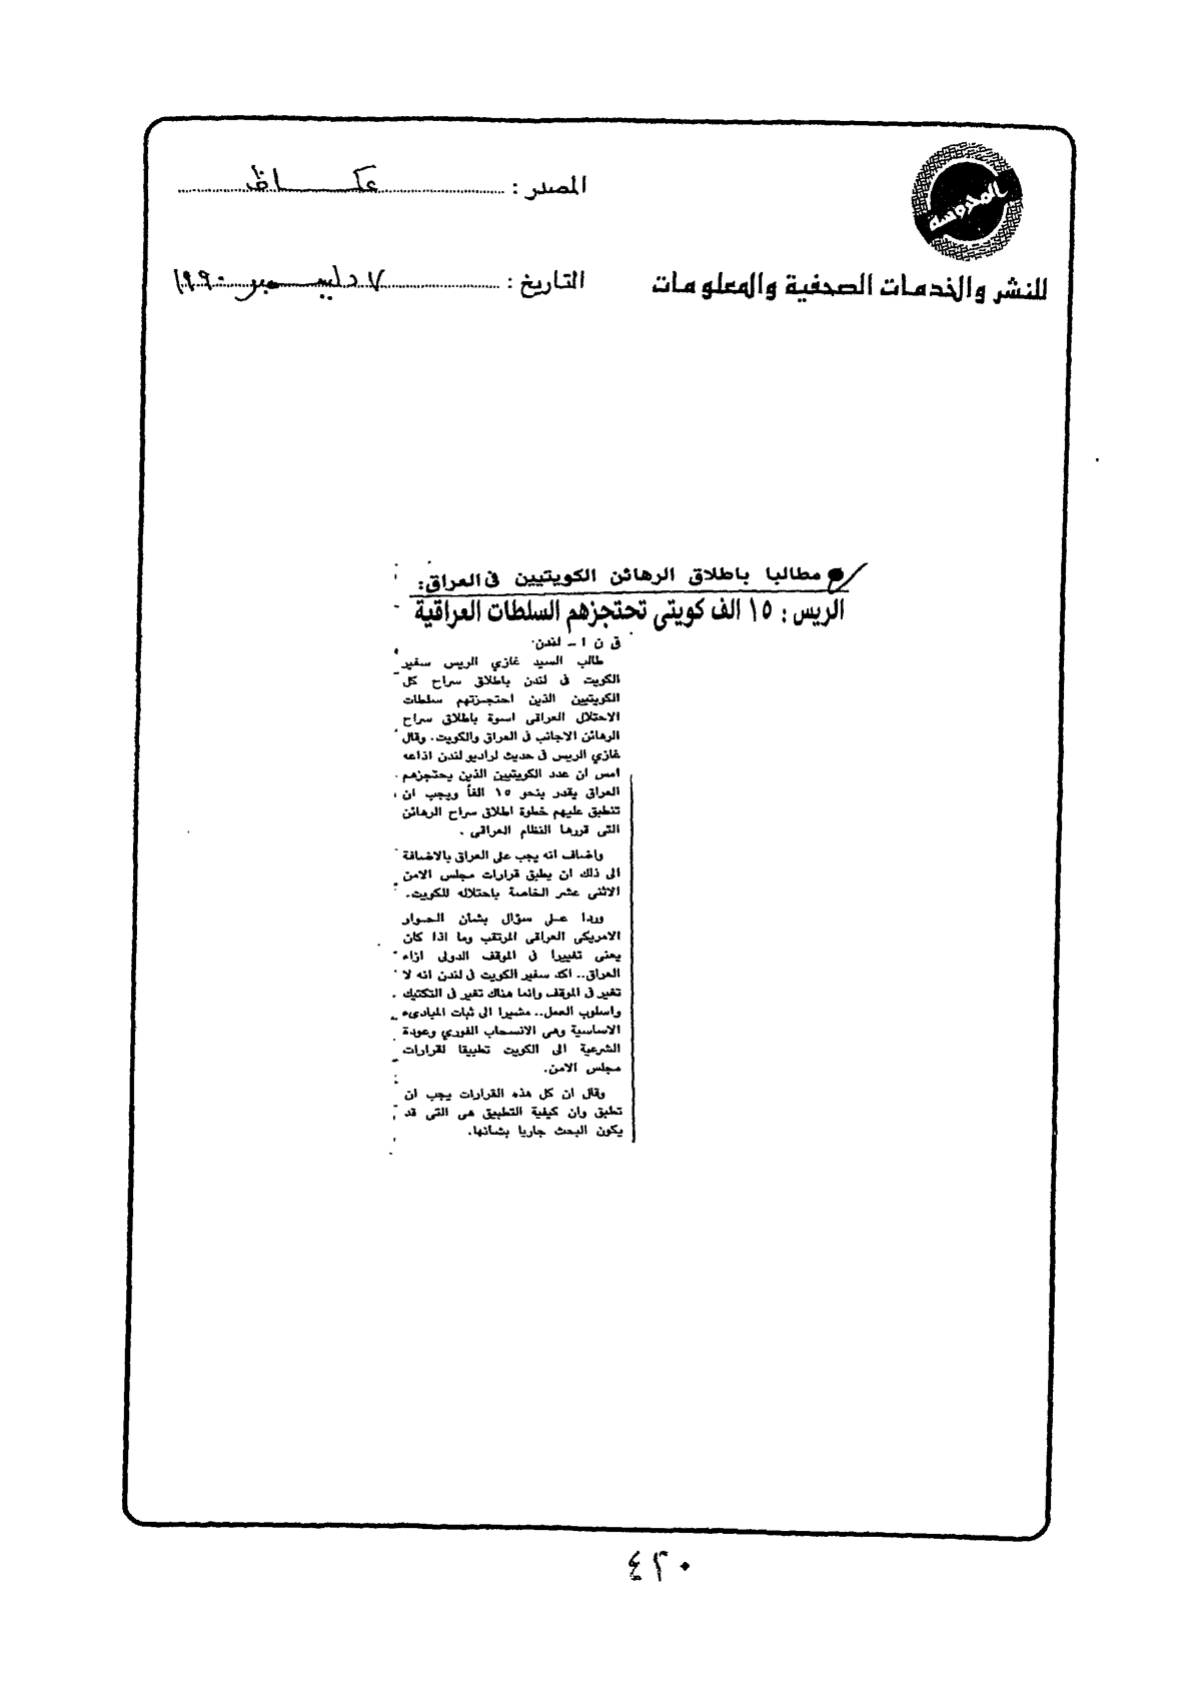 المحروسة
للنشر والخدمات الصحفية والمعلومات
المصدر : عكاظ
التاريخ : ٧ ديسمبر ١٩٩٠
مطالبا باطلاق الرهائن الكويتيين فى العراق:
الريس : ١٥ الف كويتى تحتجزهم السلطات العراقية
ق ن ا ــ لندن
طالب السيد غازي الريس سفير
الكويت فى لندن باطلاق سراح كل
الكويتيين الذين احتجزتهم سلطات
الاحتلال العراقى اسوة باطلاق سراح
الرهائن الاجانب فى العراق والكويت. وقال
غازي الريس فى حديث لراديو لندن اذاعه
امس ان عدد الكويتيين الذين يحتجزهم
العراق يقدر بنحو ١٥ الفاً ويجب ان
تنطبق عليهم خطوة اطلاق سراح الرهائن
التى قررها النظام العراقى .
واضاف انه يجب على العراق بالاضافة
الى ذلك ان يطبق قرارات مجلس الامن
الاثنى عشر الخاصة باحتلاله للكويت.
وردا على سؤال بشان الحوار
الامريكى العراقى المرتقب وما اذا كان
يعنى تغييرا فى الموقف الدولى ازاء
العراق.. اكد سفير الكويت فى لندن انه لا
تغير فى الموقف وانما هناك تغير فى التكتيك
واسلوب العمل.. مشيرا الى ثبات المبادىء
الاساسية وهى الانسحاب الفوري وعودة
الشرعية الى الكويت تطبيقا لقرارات
مجلس الامن.
وقال ان كل هذه القرارات يجب ان
تطبق وان كيفية التطبيق هى التى قد
يكون البحث جاريا بشأنها.
٤٢٠